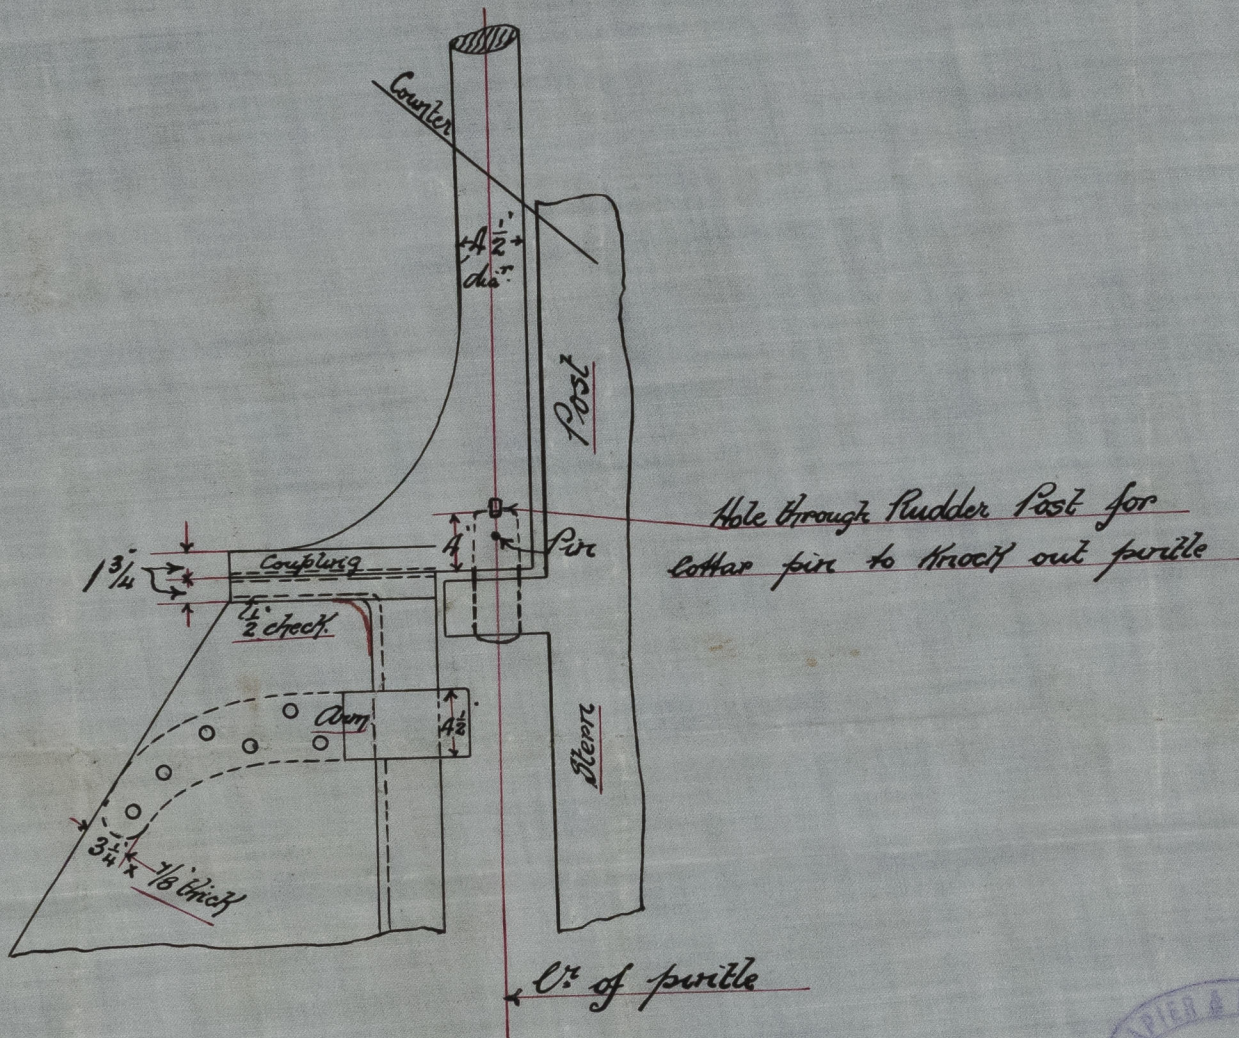 Counter
4 1/2"
diar.
Post
Hole through Rudder Post for
Cottar pin to Knock out pintle
4"
Pin
1 3/4"
Coupling
1/2" check.
Arm
4 1/2"
Stern
3 1/4" x 7/8" thick
Cr. of pintle
APIER &